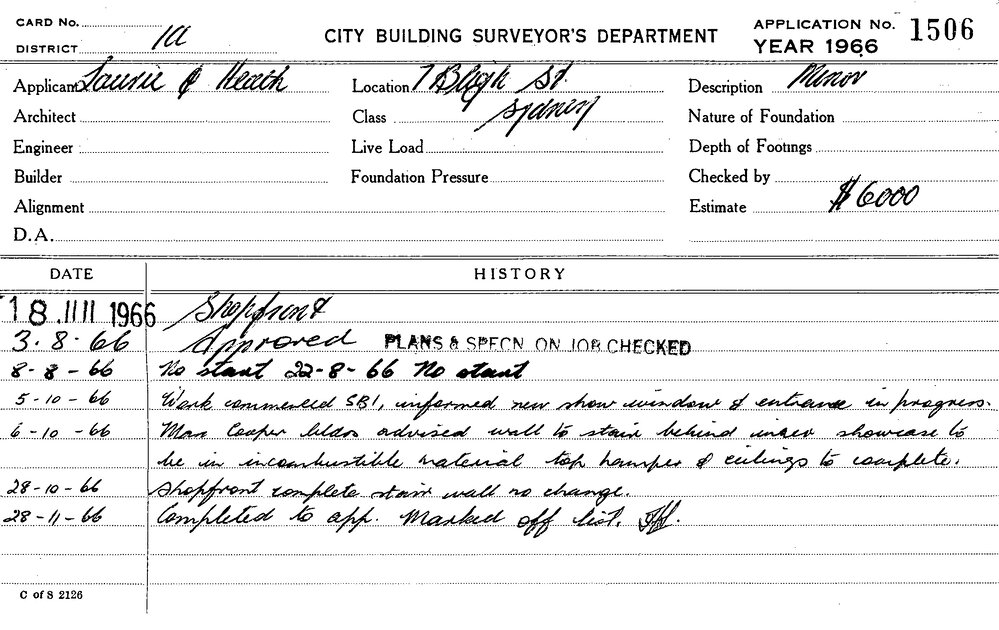 CARD No.
DISTRICT 1a
CITY BUILDING SURVEYOR'S DEPARTMENT
APPLICATION No. 1506
YEAR 1966
Applicant Laurie & Heath
Location 7 Bligh St.
Sydney
Description Minor
Architect
Class
Nature of Foundation
Engineer
Live Load
Depth of Footings
Builder
Foundation Pressure
Checked by
Alignment
Estimate $6000
D.A.
DATE HISTORY
18 JUL 1966 Shopfront
3.8.66 Approved PLANS & SPECN ON JOB CHECKED
8-8-66 No start 22-8-66 No start
5-10-66 Work commenced SB1, informed new show window & entrance in progress.
6-10-66 Cooper bldrs advised wall to stair behind inner showcase to
be in incombustible material top hamper & ceilings to complete.
28-10-66 Shopfront complete stair wall no change.
28-11-66 Completed to app. Marked off list.
C of S 2126